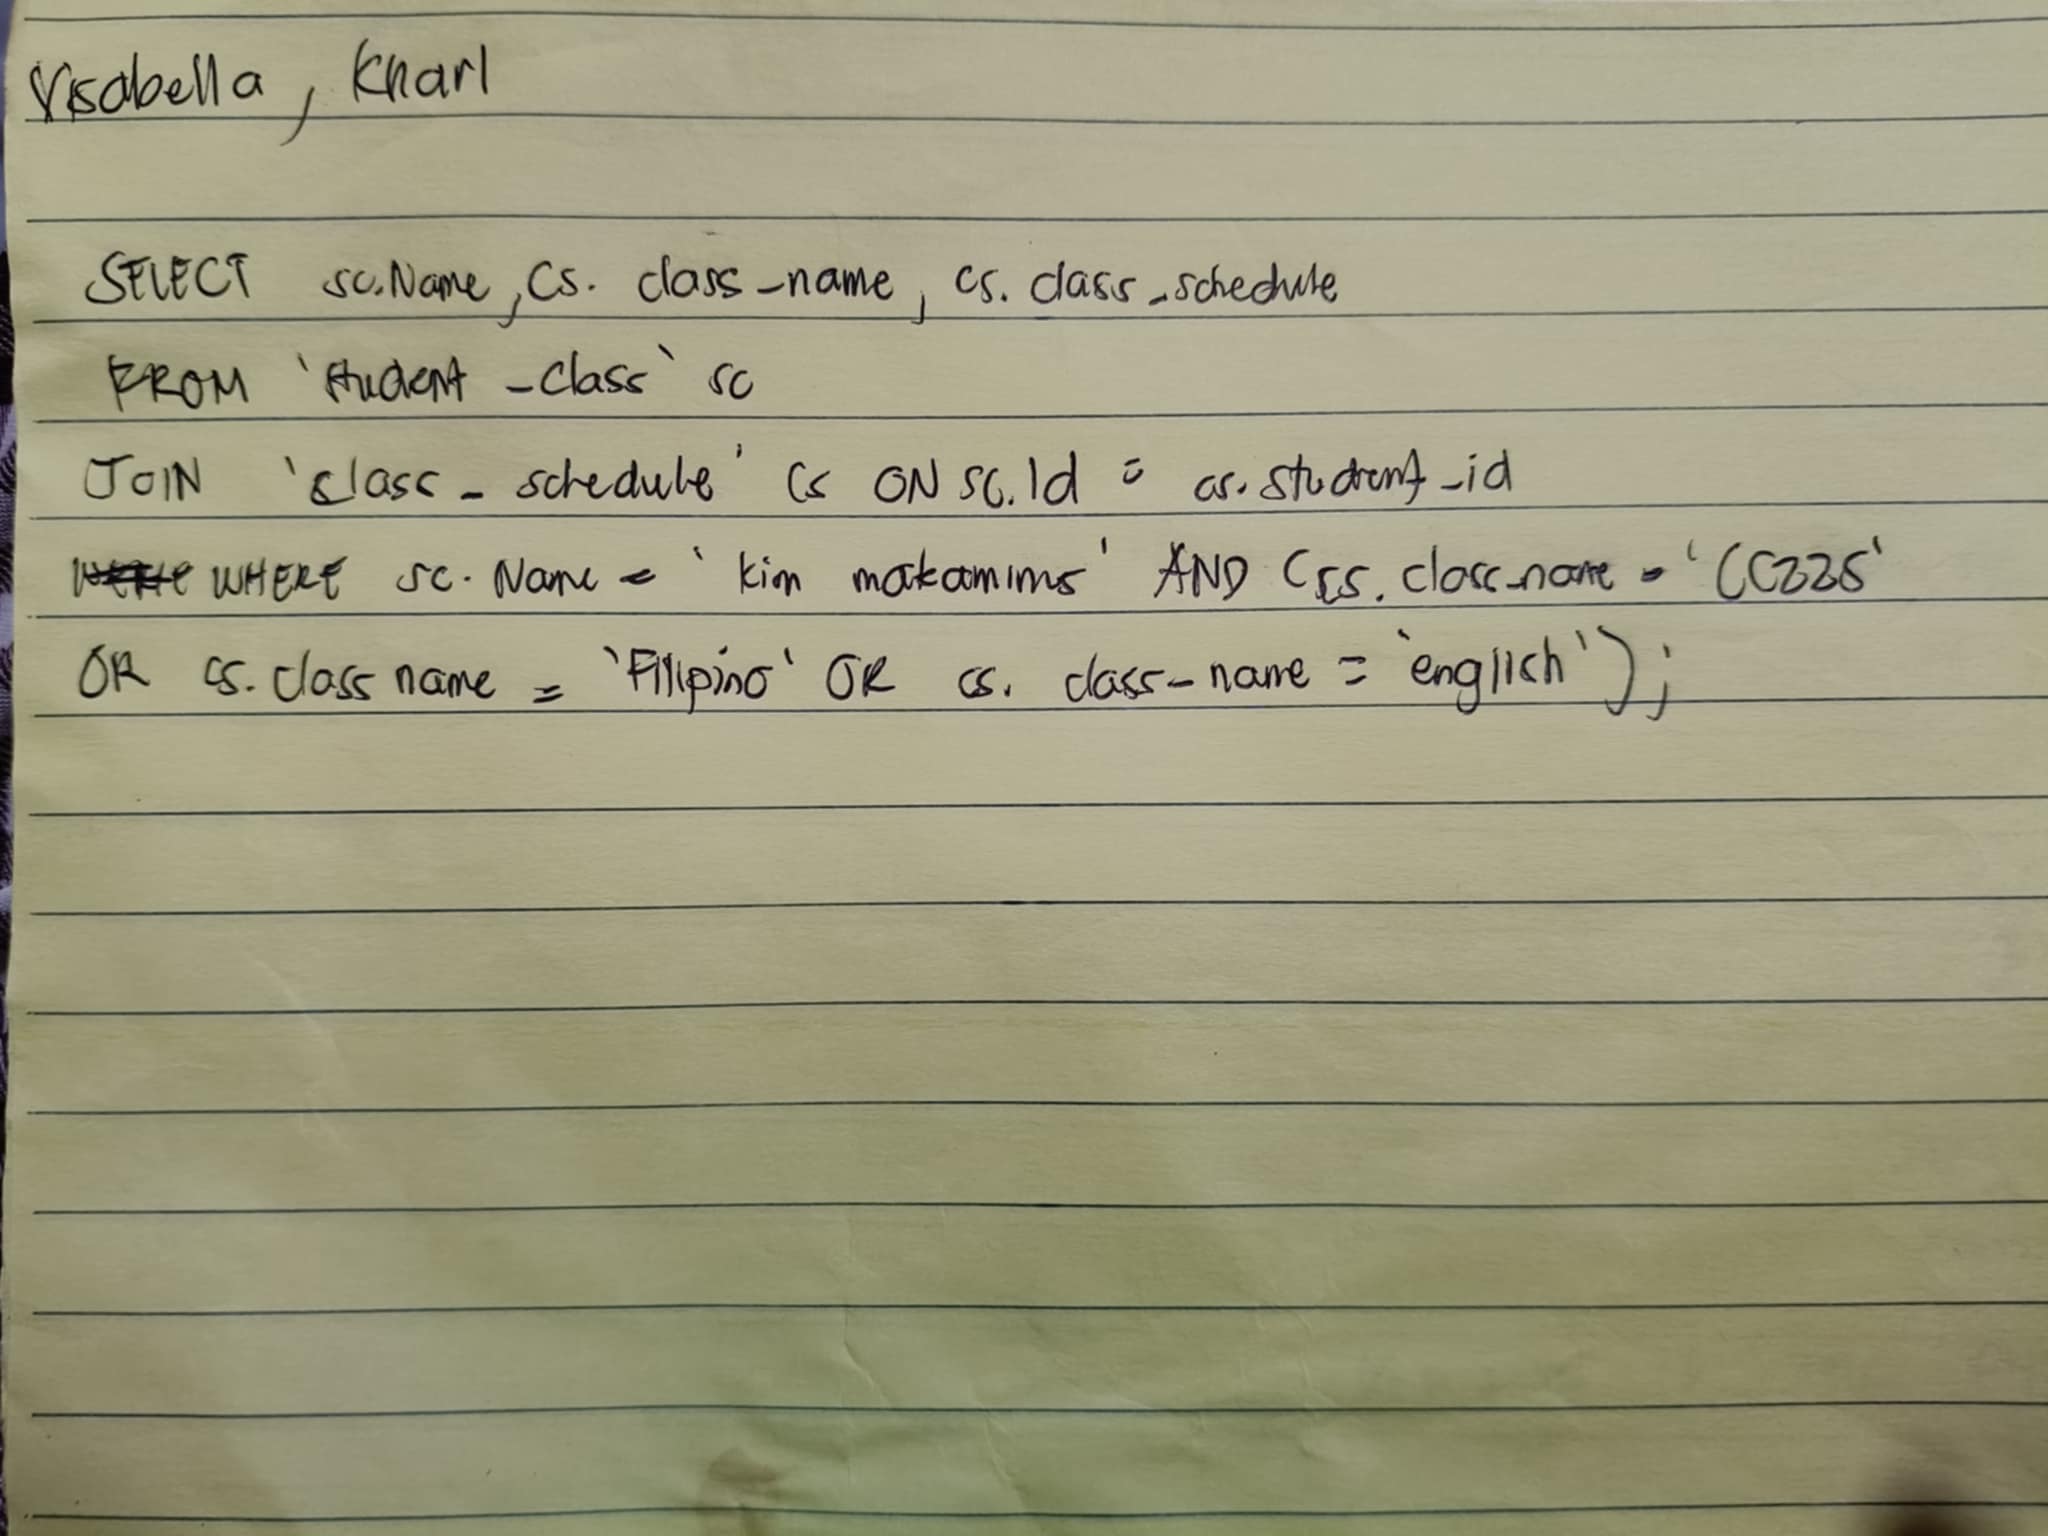 Ysabella, Kharl
SELECT sc.Name, Cs. class_name, cs. class_schedule
FROM `student_class` sc
JOIN 'class_schedule' cs ON sc.Id = cs.student_id
WHERE sc.Name = 'kim makamims' AND (cs. class_name = 'CC225'
OR cs.class name = 'Filipino' OR cs. class_name = 'english');